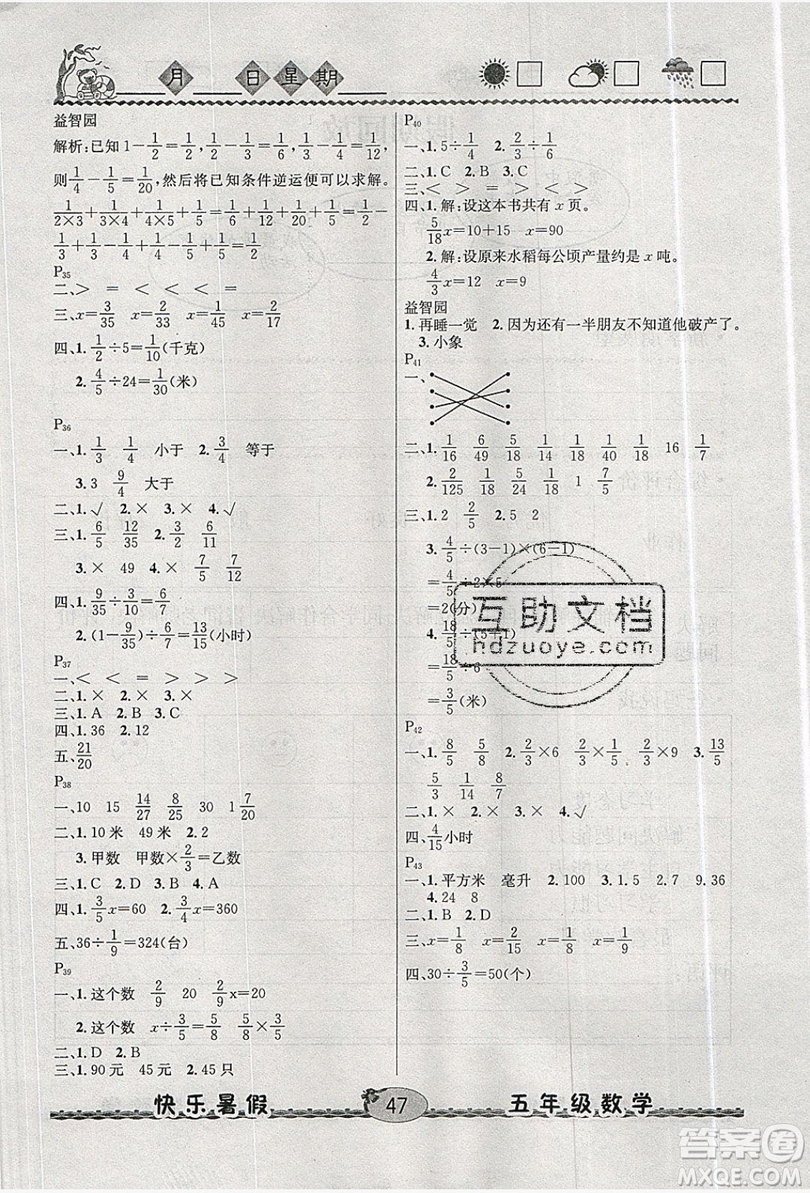 月 日 星 期
益智园
解析:已知 1-1/2=1/2,1/2-1/3=1/6,1/3-1/4=1/12,
则1/4-1/5=1/20,然后将已知条件逆运便可以求解。
1/2×3+1/3×4+1/4×5+1/5×6=1/2-1/3+
1/3-1/4+1/4-1/5+1/5-1/6=1/2-1/6=1/3
P35
二、> = < < < =
三、x=3/35 x=2/15 x=3/10 x=2/17
四、1. 1/2÷5=1/10(千克)
2. 4/5÷24=1/30(米)
P36
一、1. 1/3 1/4 小于 2. 3/4 等于
3. 3 9/4 大于
二、1. √ 2. × 3. × 4. √
三、1. 6/5 12/35 2. 3/5 6/11
3. × 49 4. × 15/7
四、1. 9/35÷3/10=6/7
2. (1-9/35)÷6/7=13/15(小时)
P37
一、< < = > > >
二、1. √ 2. × 3. ×
三、1. A 2. B 3. C
四、1. 36 2. 12
五、21/20
P38
一、10 15 14/27 8/25 30 1 7/20
二、1. 10米 49米 2. 2
3. 甲数 甲数×2/3=乙数
三、1. C 2. D 3. B 4. A
四、1. 3/5x=60 2. 4/5x=360
五、36÷1/9=324(台)
P39
一、1. 这个数 2/9 20 2/9x=20
2. 这个数 x÷3/5=5/8 5/8×3/5
二、1. D 2. B
三、1. 90元 45元 2. 45只
P40
一、1. 5÷1/4 2. 3/5÷1/6
二、1. C 2. B 3. C
三、< > = >
四、1. 解:设这本书共有 x 页。
5/18x=10+15 x=90
2. 解:设原来水稻每公顷产量约是 x 吨。
4/3x=12 x=9
益智园
1. 再睡一觉 2. 因为还有一半朋友不知道他破产了。
3. 小象
P41
一、
二、1. 1/16 6/49 5/18 1/14 1/40 1/18 16 1/7
2. 2/125 1/18 5/14 1/18 7/5
三、1. 2 2/5 2. 5 2
3. 4/5÷(3-1)×(6-1)
=4/5÷2×5
=2(分)
=3/5(米)
P42
一、1. 8/5 5/8 2. 2/3×6 3/2×6 2/3×9 3. 13/5
5/3 14/5 8/3 4/9
二、1. × 2. × 3. × 4. √
四、4/15小时
P43
一、1. 平方米 毫升 2. 100 3. 1.5 2.7 9.36
4. 24 8
二、1. B 2. D
三、x=1/8 x=1/9 x=5/8 x=4/9
四、30÷3/5=50(个)
互助文档
hdzuoye.com
快乐暑假 47 五年级数学
答案圈
MXQE.COM